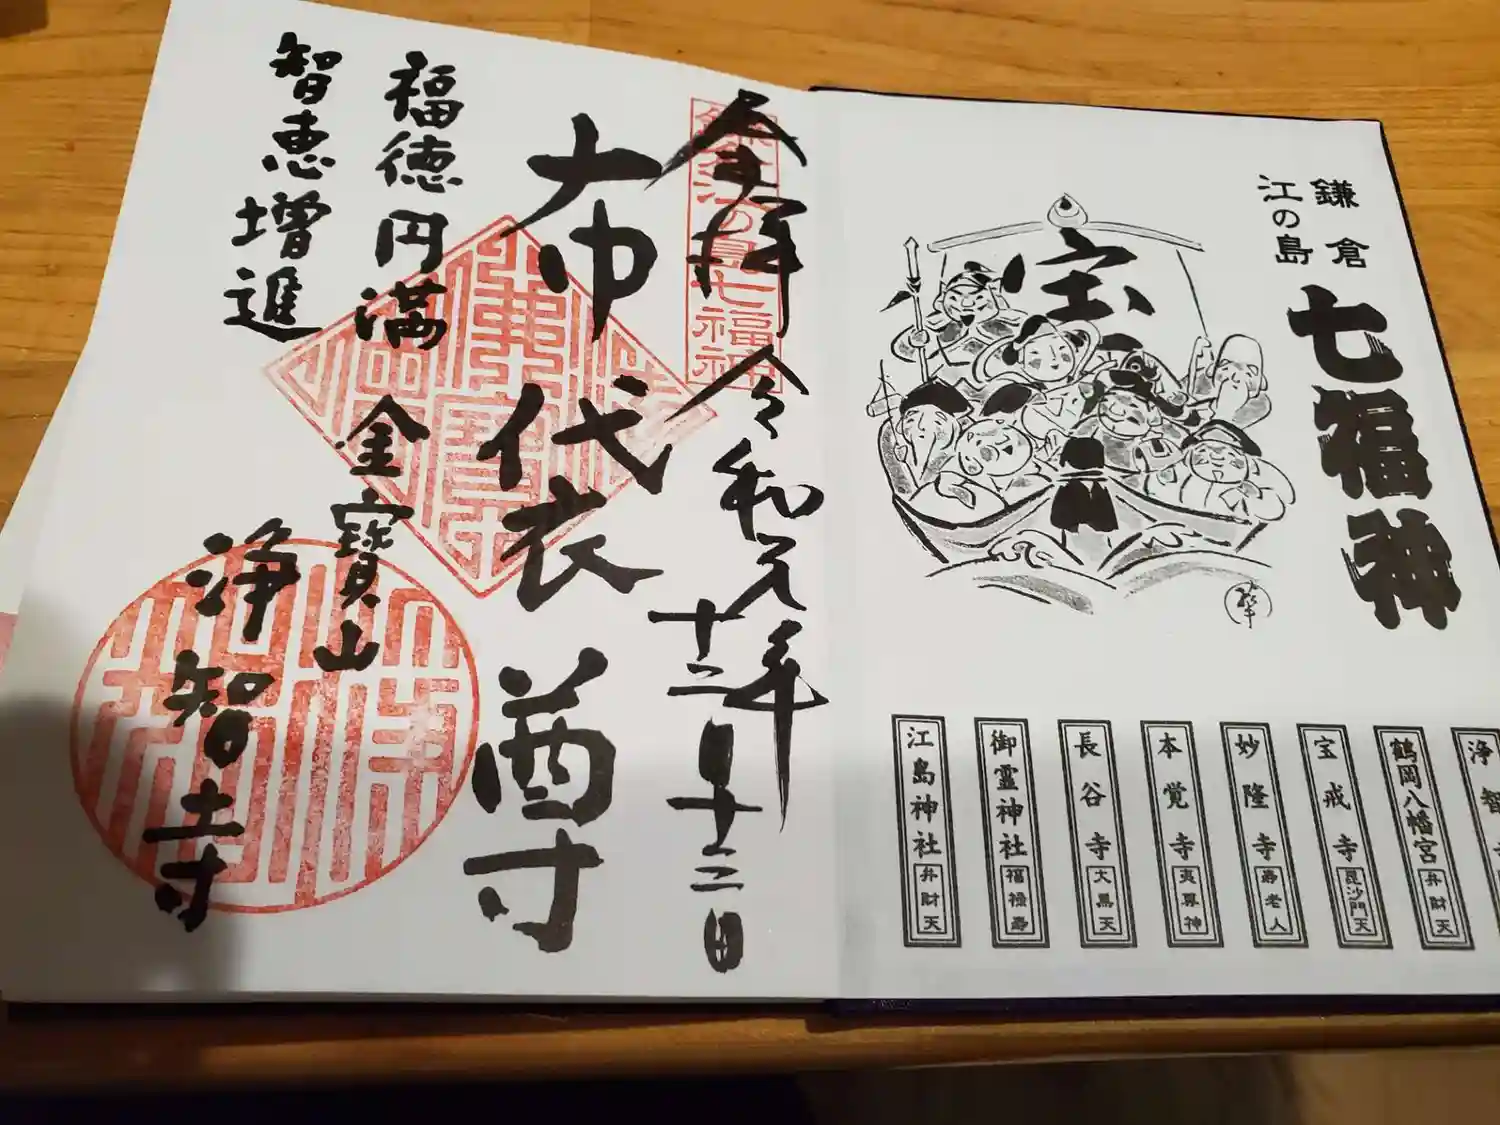 鎌倉
江の島
七福神
宝
浄智
鶴岡八幡宮
弁財天
宝戒寺
毘沙門天
妙隆寺
寿老人
本覚寺
夷尊神
長谷寺
大黒天
御霊神社
福禄寿
江島神社
弁財天
鎌倉江の島七福神
奉拝 令和元年
十二月十三日
布袋尊
福徳円満
智恵増進
金寶山
浄智寺